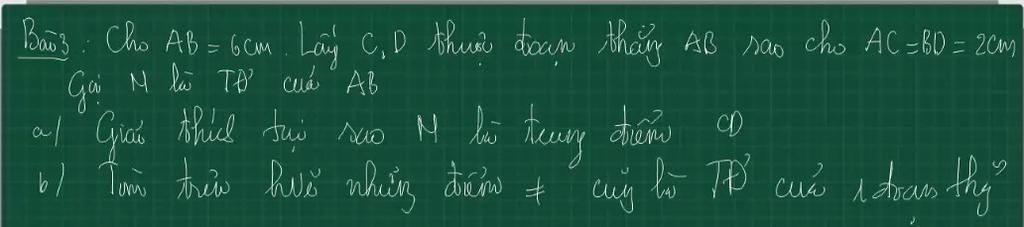 Bài 3: Cho AB = 6cm. Lấy C, D thuộc đoạn thẳng AB sao cho AC = BD = 2cm
Gọi M là TĐ của AB
a/ Giải thích tại sao M là trung điểm CD
b/ Tìm trên hvẽ những điểm ≠ cũng là TĐ của 1 đoạn thg